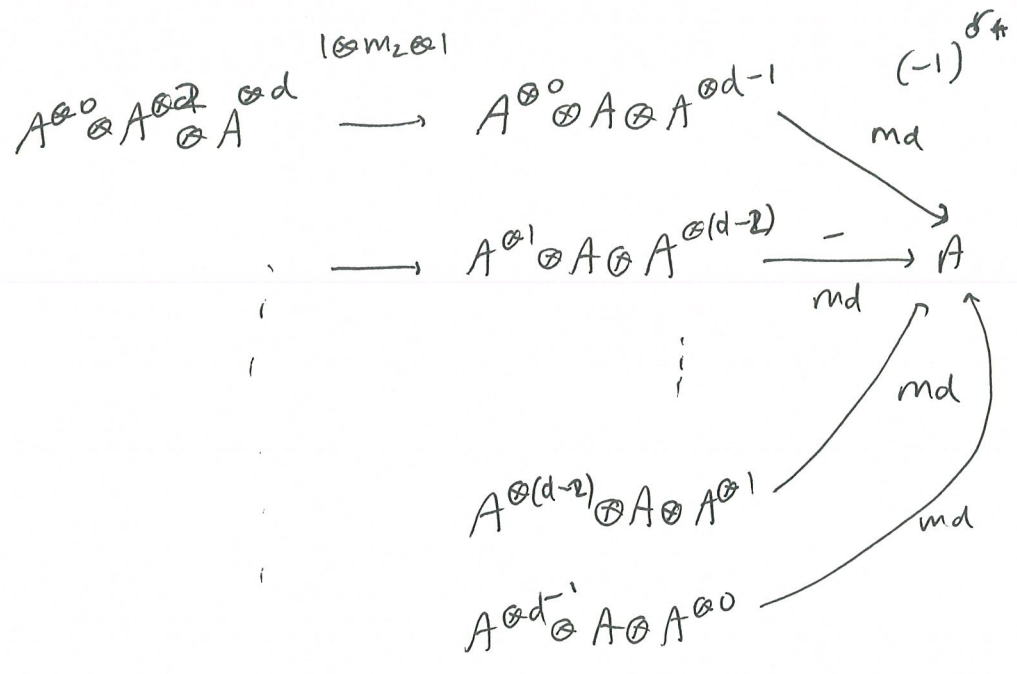 1⊗m₂⊗1
A^{⊗0} ⊗ A^{⊗2} ⊗ A^{⊗d} ⟶ A^{⊗0} ⊗ A ⊗ A^{⊗d-1} (-1)
md
⟶ A^{⊗1} ⊗ A ⊗ A^{⊗(d-2)} − ⟶ A
md
⋮ ⋮
md
A^{⊗(d-2)} ⊗ A ⊗ A^{⊗1}
md
A^{⊗d-1} ⊗ A ⊗ A^{⊗0}